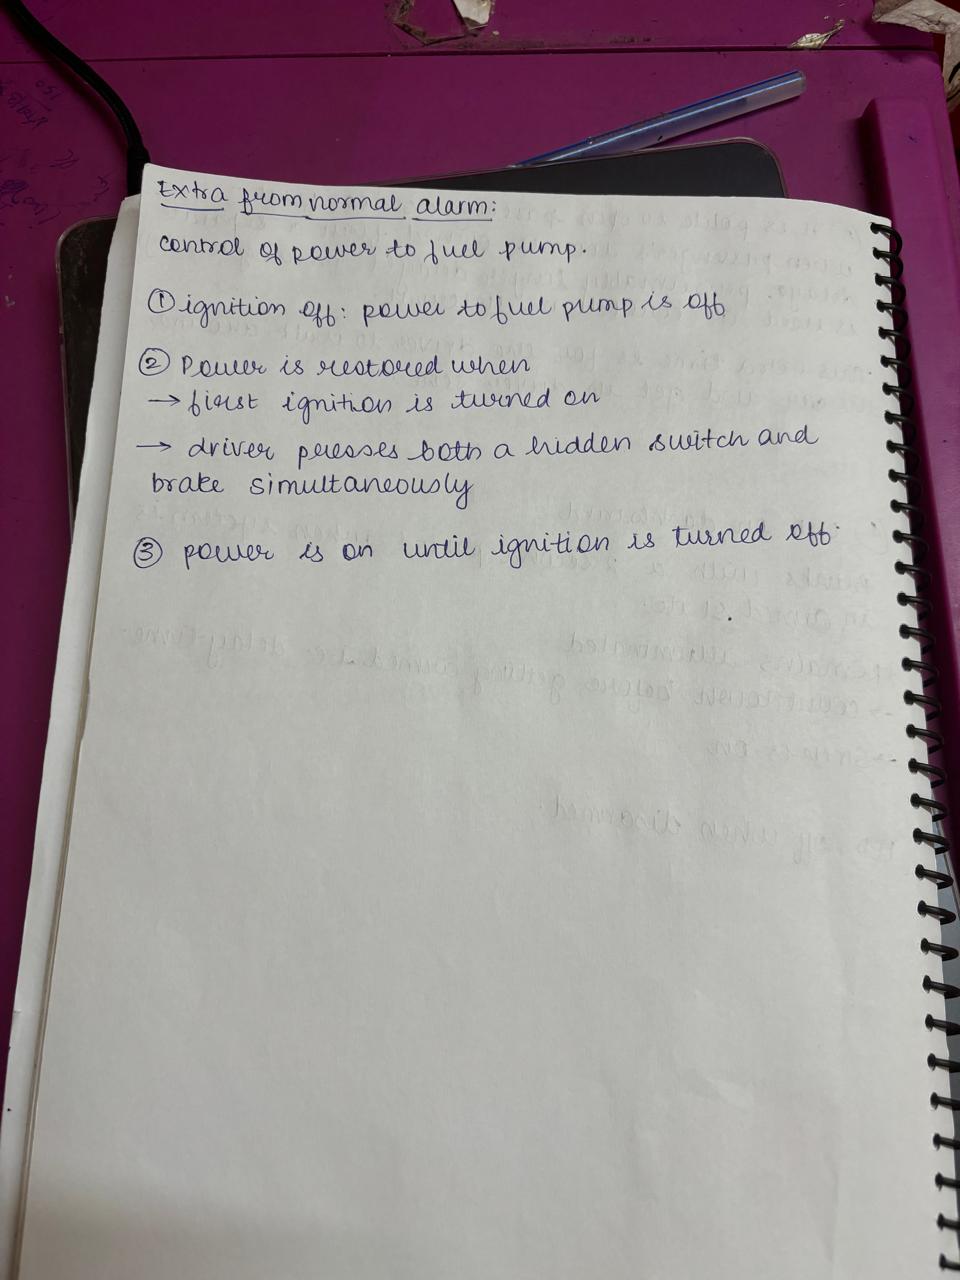 Extra from normal alarm:
control of power to fuel pump.
① ignition off: power to fuel pump is off
② Power is restored when
→ first ignition is turned on
→ driver presses both a hidden switch and
brake simultaneously
③ power is on until ignition is turned off.